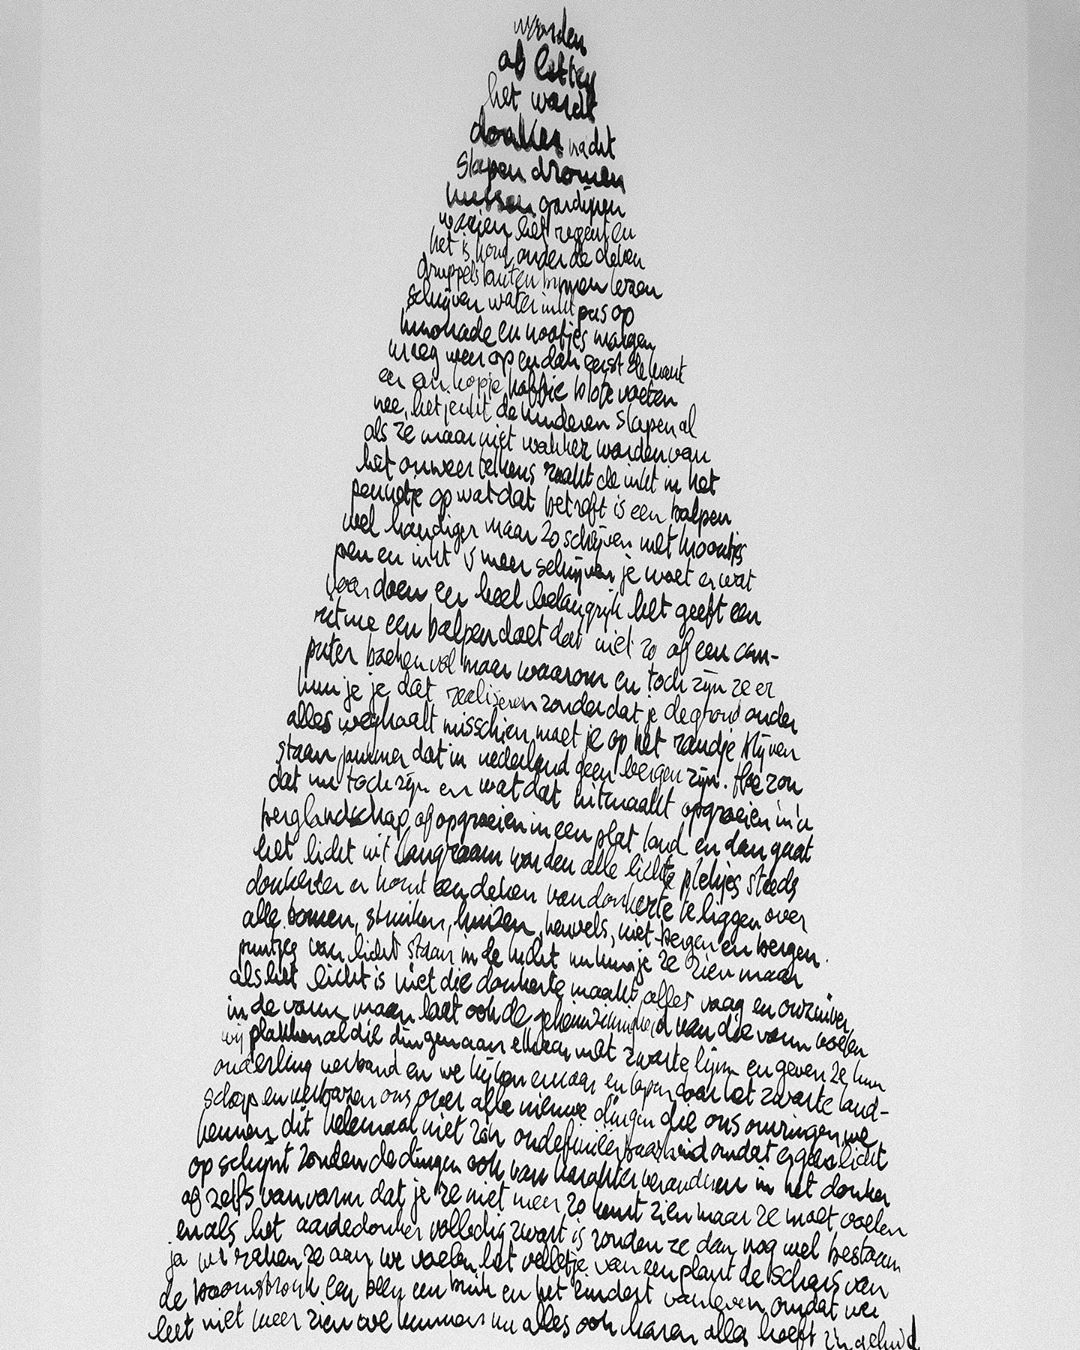 worden
het wordt
donker nacht
slapen dromen
gordijnen
waaien het regent en
het is koud onder de deken
druppels buiten binnen lezen
schrijven water inkt pas op
limonade en nootjes morgen
vroeg weer op en dan eerst de krant
en een kopje koffie blote voeten
nee, het jeukt de kinderen slapen al
als ze maar niet wakker worden van
het onweer telkens raakt de inkt in het
pennetje op wat dat betreft is een balpen
wel handiger maar zo schrijven met kroontjes
pen en inkt is meer schrijven je moet er wat
voor doen en heel belangrijk het geeft een
ritme een balpen doet dat niet zo of een com-
puter boeken vol maar waarom en toch zijn ze er
kun je je dat realiseren zonder dat je de grond onder
alles weghaalt misschien moet je op het randje blijven
staan jammer dat in nederland geen bergen zijn. Hoe zou
dat nu toch zijn en wat dat uitmaakt opgroeien in 'n
berglandschap of opgroeien in een plat land en dan gaat
het licht uit langzaam worden alle lichte plekjes steeds
donkerder er komt een deken van donkerte te liggen over
alle bomen, struiken, huizen, heuvels, niet-bergen en bergen.
puntjes van licht staan in de lucht nu kun je ze zien maar
als het licht is niet die donkerte maakt alles vaag en onzuiver
in de vorm maar laat ook de geheimzinnigheid van die vorm voelen
wij plakken al die dingen aan elkaar met zwarte lijnen en geven ze hun
onderling verband en we kijken ernaar en lopen door het zwarte land-
schap en verbazen ons over alle nieuwe dingen die ons omringen we
kennen dit helemaal niet zo'n ondefinieerbaarheid omdat er geen licht
op schijnt zouden de dingen ook van karakter veranderen in het donker
of zelfs van vorm dat je ze niet meer zo kunt zien maar ze moet voelen
en als het aardedonker volledig zwart is zouden ze dan nog wel bestaan
ja we raken ze aan we voelen het velletje van een plant de schors van
de boomstronk een een en het van omdat we
het niet meer zien we kunnen nu alles ook horen alles heeft z'n geluid